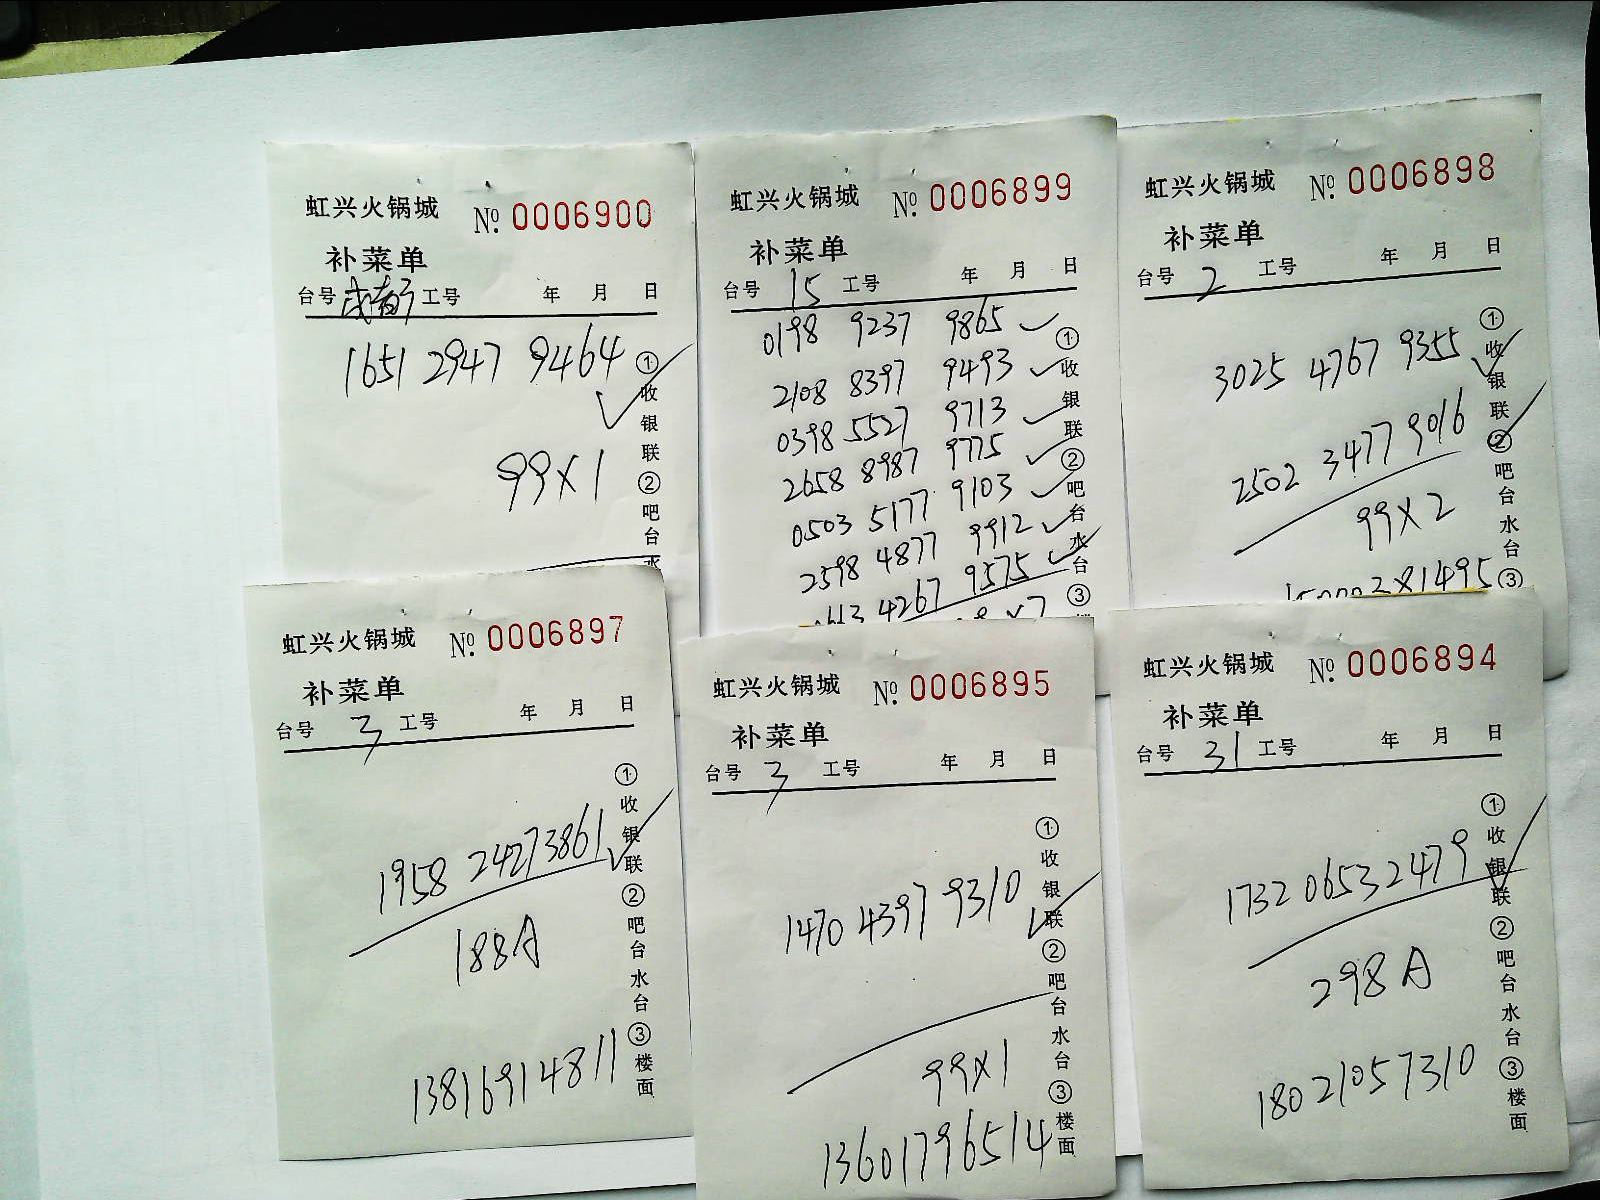 虹兴火锅城 No. 0006900
补菜单
台号 成都厅 工号 年 月 日
1651 2947 9464
99X1
①收银联②吧台水
虹兴火锅城 No. 0006899
补菜单
台号 15 工号 年 月 日
0198 9237 9865
2108 8397 9493
0398 5527 9713
2658 8987 9775
0503 5177 9103
2598 4877 9912
4267 9575
①收银联②吧台水台③
虹兴火锅城 No. 0006898
补菜单
台号 2 工号 年 月 日
3025 4767 9355
2502 3477 9016
99X2
①收银联②吧台水台③
虹兴火锅城 No. 0006897
补菜单
台号 3 工号 年 月 日
1958 24273861
188A
13816914811
①收银联②吧台水台③楼面
虹兴火锅城 No. 0006895
补菜单
台号 3 工号 年 月 日
1470 4397 9310
99X1
13601796514
①收银联②吧台水台③楼面
虹兴火锅城 No. 0006894
补菜单
台号 31 工号 年 月 日
1732 0653 2479
298A
18021057310
①收银联②吧台水台③楼面